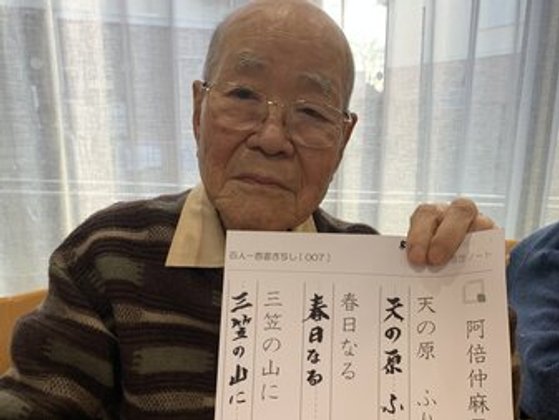 百人一首書き写し［００７］
ノート
阿倍仲麻
天の原　ふ
天の原　ふ
春日なる
春日なる
三笠の山に
三笠の山に